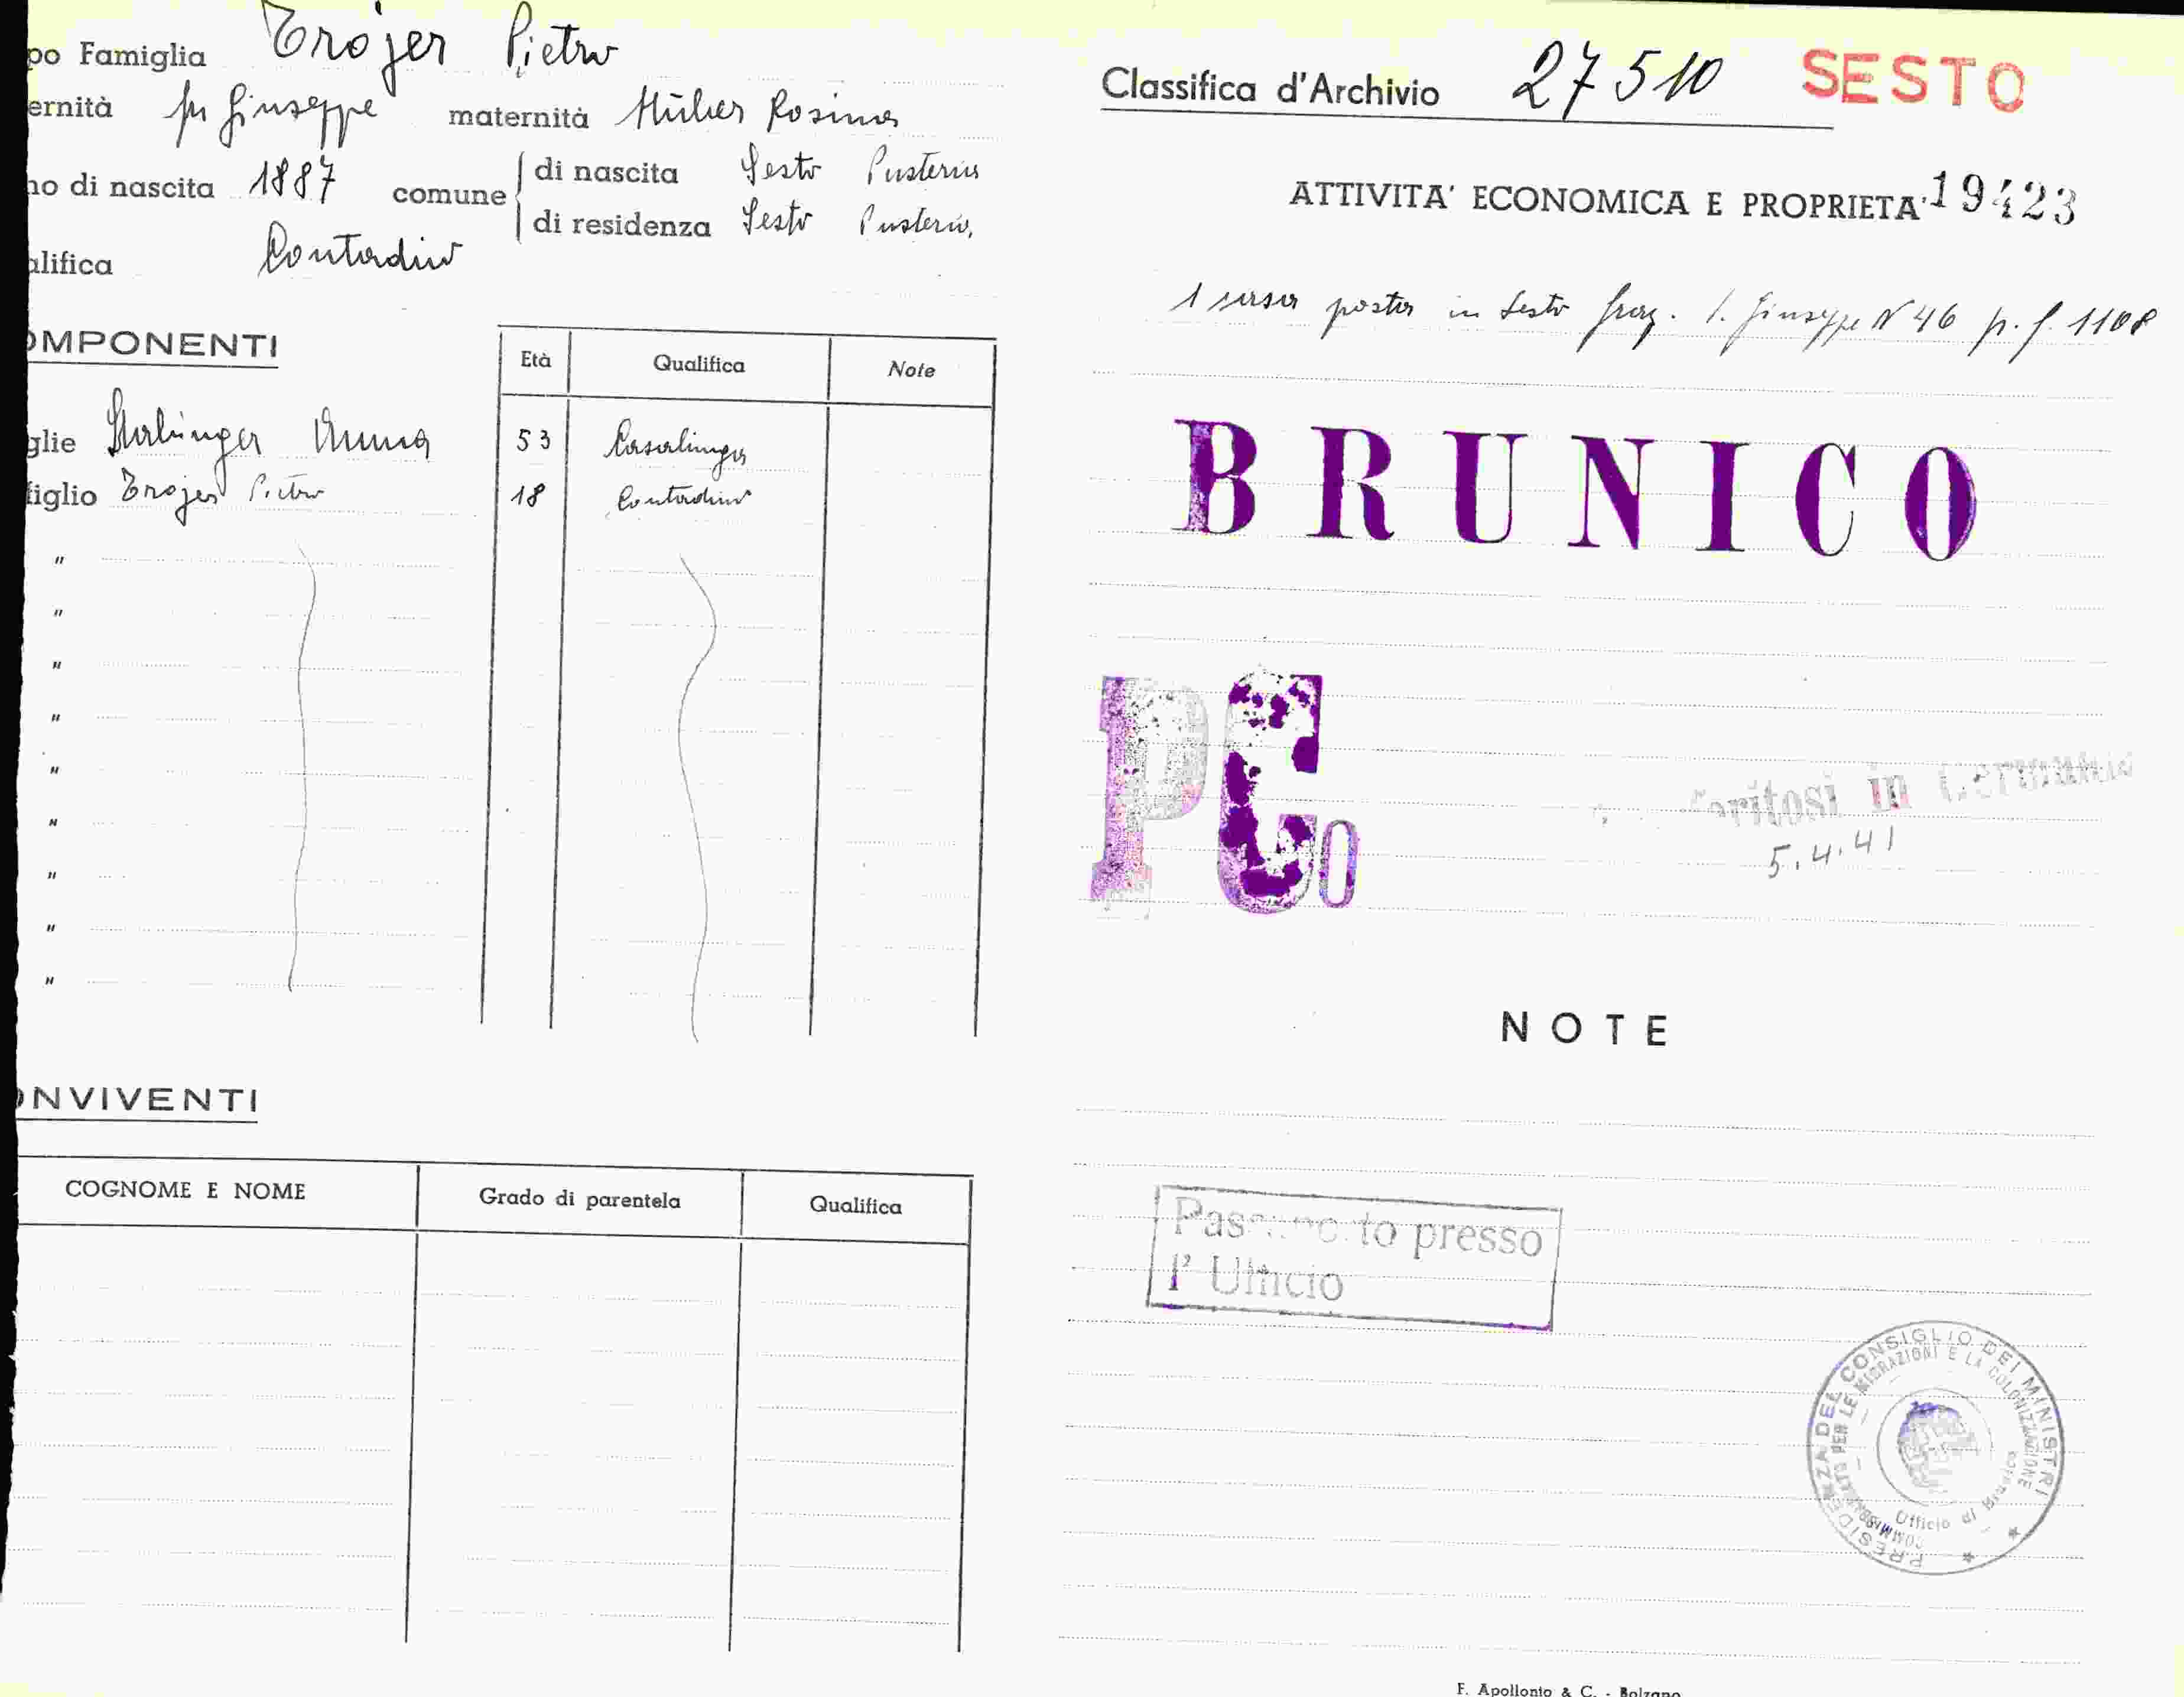 po Famiglia Trojer Pietro
ernità fu Giuseppe maternità Rosina
no di nascita 1887 comune di nascita Sesto Pusteria
di residenza Sesto Pusteria
alifica Contadino
OMPONENTI
Età Qualifica Note
glie Anna 53 Casalinga
figlio Trojer Pietro 18 Contadino
"
"
"
"
"
"
"
"
"
ONVIVENTI
COGNOME E NOME Grado di parentela Qualifica
Classifica d'Archivio 27510 SESTO
ATTIVITA' ECONOMICA E PROPRIETA' 19423
1 casa posta in Sesto fraz. S. Giuseppe N 46 p. f. 1108
BRUNICO
PCo
in Germania
5.4.41
NOTE
presso
l' Ufficio
PRESIDENZA DEL CONSIGLIO DEI MINISTRI
PER LE MIGRAZIONI E LA COLONIZZAZIONE
Ufficio di Brunico
F. Apollonio & C. - Bolzano